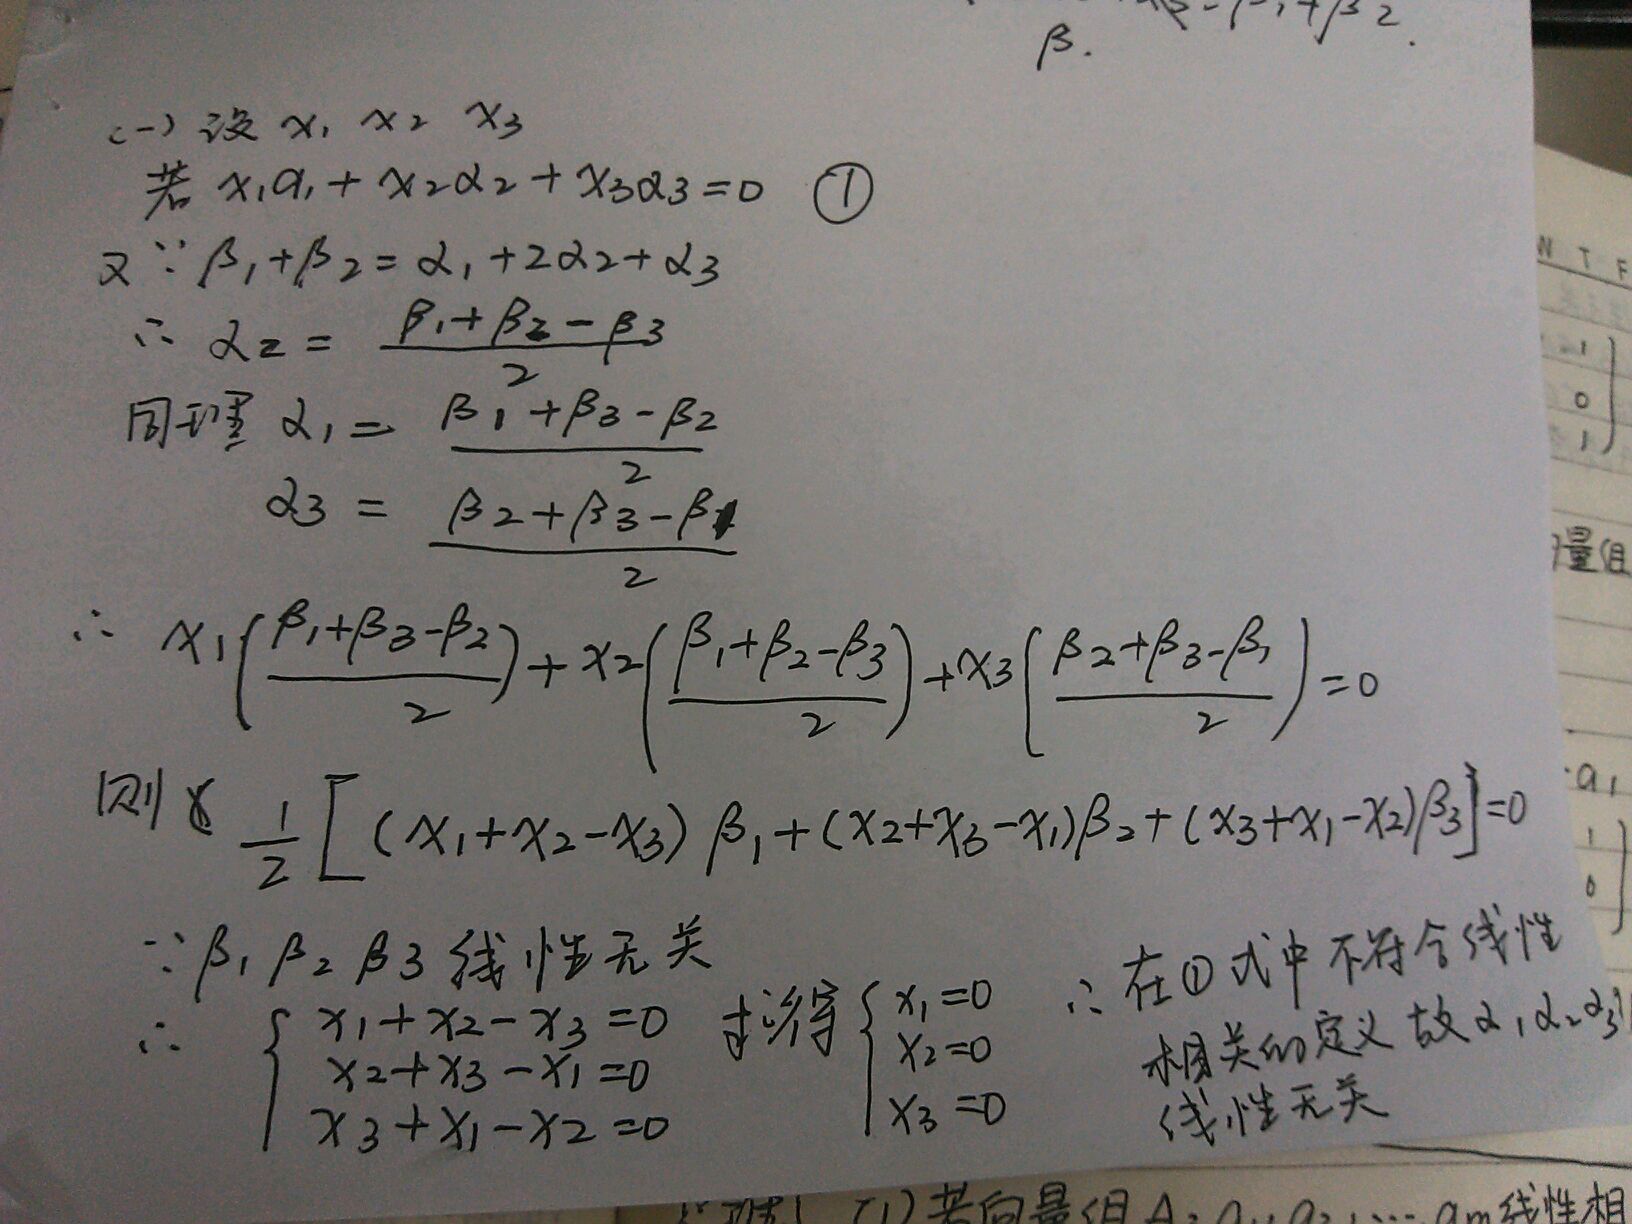 β.
(一) 设 x₁ x₂ x₃
若 x₁α₁ + x₂α₂ + x₃α₃ = 0 ①
又∵ β₁ + β₂ = α₁ + 2α₂ + α₃
∴ α₂ = (β₁ + β₂ - β₃)/2
同理 α₁ = (β₁ + β₃ - β₂)/2
α₃ = (β₂ + β₃ - β₁)/2
∴ x₁((β₁+β₃-β₂)/2) + x₂((β₁+β₂-β₃)/2) + x₃((β₂+β₃-β₁)/2) = 0
则 1/2 [(x₁+x₂-x₃)β₁ + (x₂+x₃-x₁)β₂ + (x₃+x₁-x₂)β₃] = 0
∵ β₁ β₂ β₃ 线性无关
∴ { x₁+x₂-x₃=0
x₂+x₃-x₁=0
x₃+x₁-x₂=0
求得 { x₁=0
x₂=0
x₃=0
∴ 在①式中不符合线性
相关的定义 故 α₁ α₂ α₃
线性无关
N T F
-1
0
1
量组
a₁
1
0
(1) 若向量组 A: a₁, a₂, ..., am 线性相